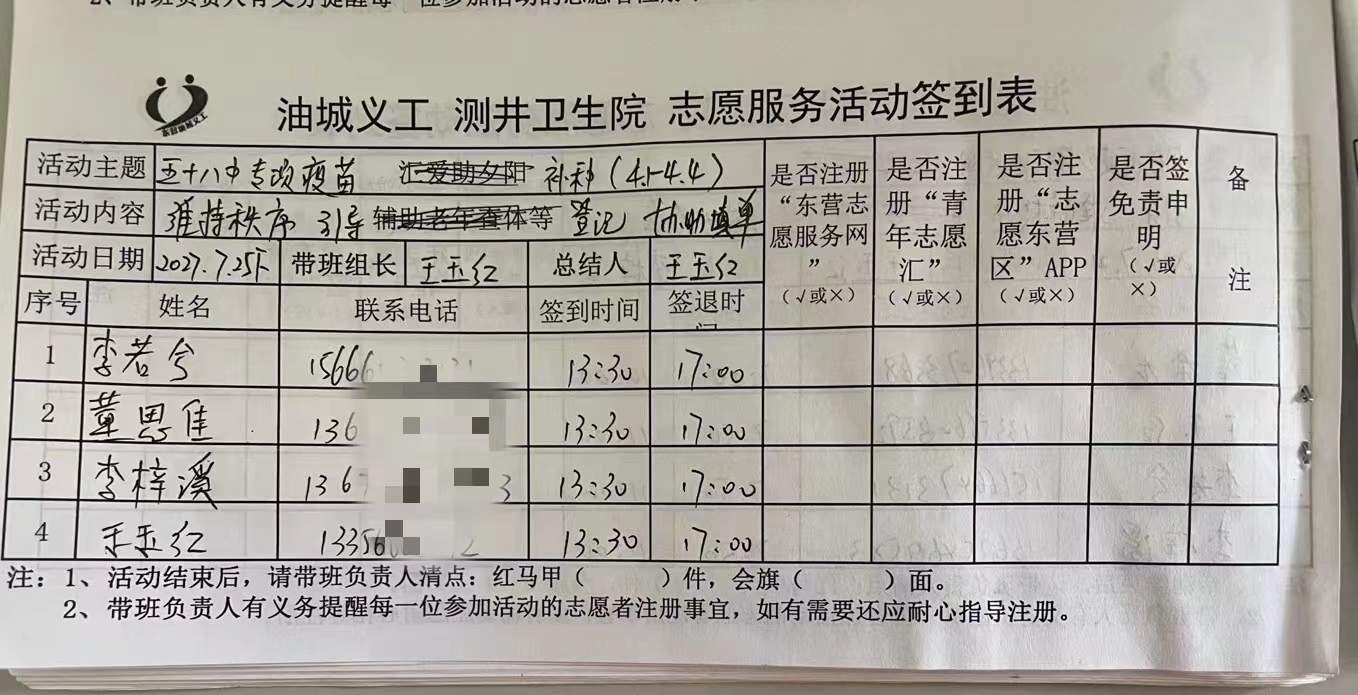 油城义工 测井卫生院 志愿服务活动签到表
活动主题 五十八中专项疫苗 汇爱助夕阳 补种(4.1-4.4)
活动内容 维持秩序 引导 辅助老年查体等 登记 协助填单
活动日期 2021.7.25下 带班组长 王玉红 总结人 王玉红
是否注册“东营志愿服务网”(√或×)
是否注册“青年志愿汇”(√或×)
是否注册“志愿东营区”APP(√或×)
是否签免责申明(√或×)
备注
序号 姓名 联系电话 签到时间 签退时间
1 李若兮 15666 13:30 17:00
2 董思佳 136 13:30 17:00
3 李梓溪 136 3 13:30 17:00
4 王玉红 13356 2 13:30 17:00
注:1、活动结束后,请带班负责人清点:红马甲( )件,会旗( )面。
2、带班负责人有义务提醒每一位参加活动的志愿者注册事宜,如有需要还应耐心指导注册。